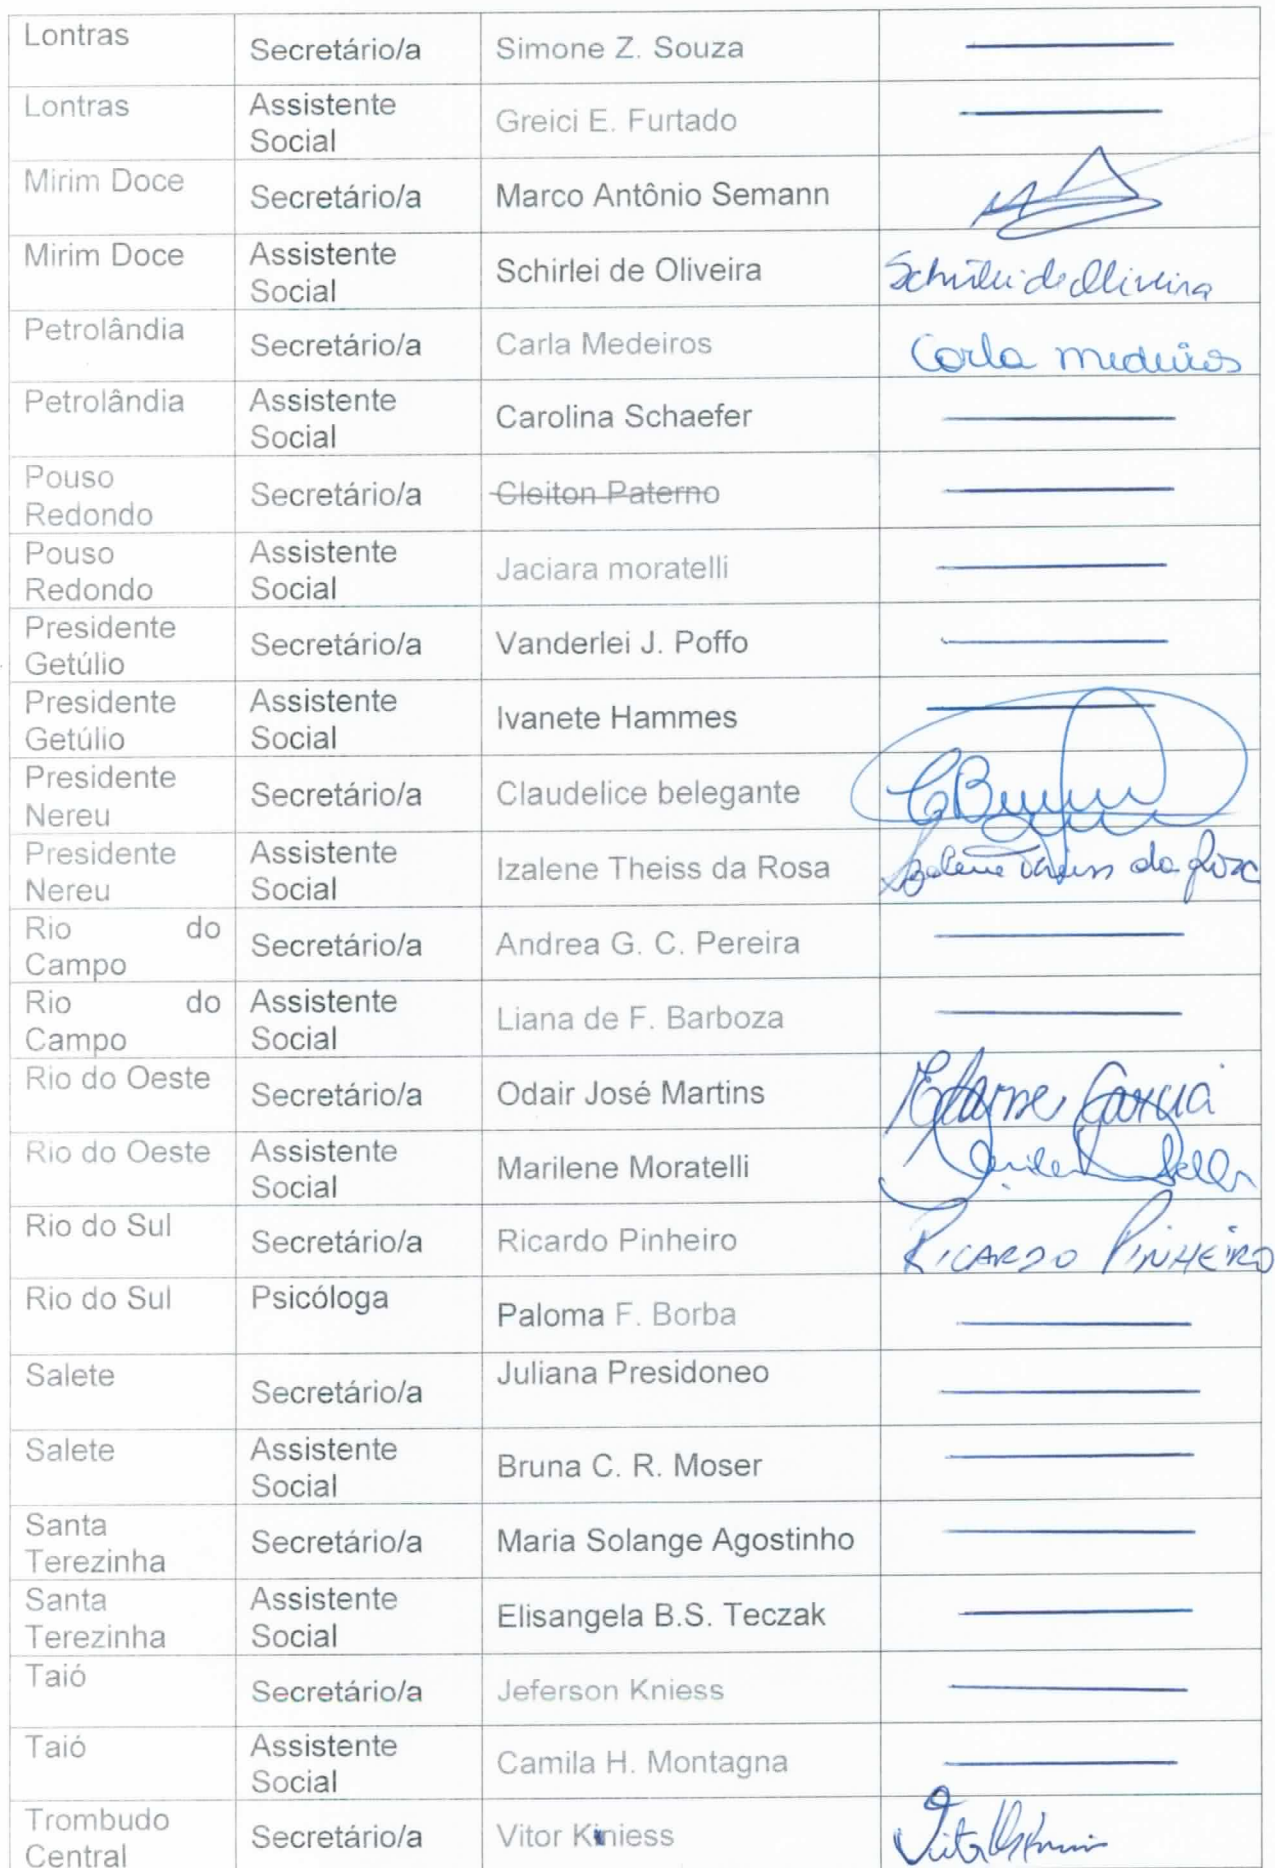 Lontras
Secretário/a
Simone Z. Souza
Lontras
Assistente
Social
Greici E. Furtado
Mirim Doce
Secretário/a
Marco Antônio Semann
Mirim Doce
Assistente
Social
Schirlei de Oliveira
Schirlei de Oliveira
Petrolândia
Secretário/a
Carla Medeiros
Carla medeiros
Petrolândia
Assistente
Social
Carolina Schaefer
Pouso
Redondo
Secretário/a
Cleiton Paterno
Pouso
Redondo
Assistente
Social
Jaciara moratelli
Presidente
Getúlio
Secretário/a
Vanderlei J. Poffo
Presidente
Getúlio
Assistente
Social
Ivanete Hammes
Presidente
Nereu
Secretário/a
Claudelice belegante
Presidente
Nereu
Assistente
Social
Izalene Theiss da Rosa
Izalene Theiss da Rosa
Rio do
Campo
Secretário/a
Andrea G. C. Pereira
Rio do
Campo
Assistente
Social
Liana de F. Barboza
Rio do Oeste
Secretário/a
Odair José Martins
Garcia
Rio do Oeste
Assistente
Social
Marilene Moratelli
Rio do Sul
Secretário/a
Ricardo Pinheiro
RICARDO PINHEIRO
Rio do Sul
Psicóloga
Paloma F. Borba
Salete
Secretário/a
Juliana Presidoneo
Salete
Assistente
Social
Bruna C. R. Moser
Santa
Terezinha
Secretário/a
Maria Solange Agostinho
Santa
Terezinha
Assistente
Social
Elisangela B.S. Teczak
Taió
Secretário/a
Jeferson Kniess
Taió
Assistente
Social
Camila H. Montagna
Trombudo
Central
Secretário/a
Vitor Kiniess